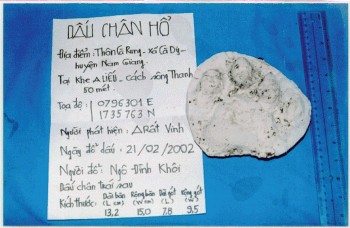 DẤU CHÂN HỔ
Địa điểm: Thôn Cà Rung - Xã Cà Dy -
huyện Nam Giang.
Tại Khe A LIÊU - cách sông Thanh
50 mét.
Toạ độ: 0796301 E
1735763 N
Người phát hiện: ARất Vinh
Ngày đổ dấu: 21/02/2002
Người đổ: Ngô Đình Khôi
Dấu chân trái sau
Kích thước: Dài bàn Rộng bàn Dài gót Rộng gót
(L cm) (W cm) (L) (W)
13,2 15,0 7,8 9,5